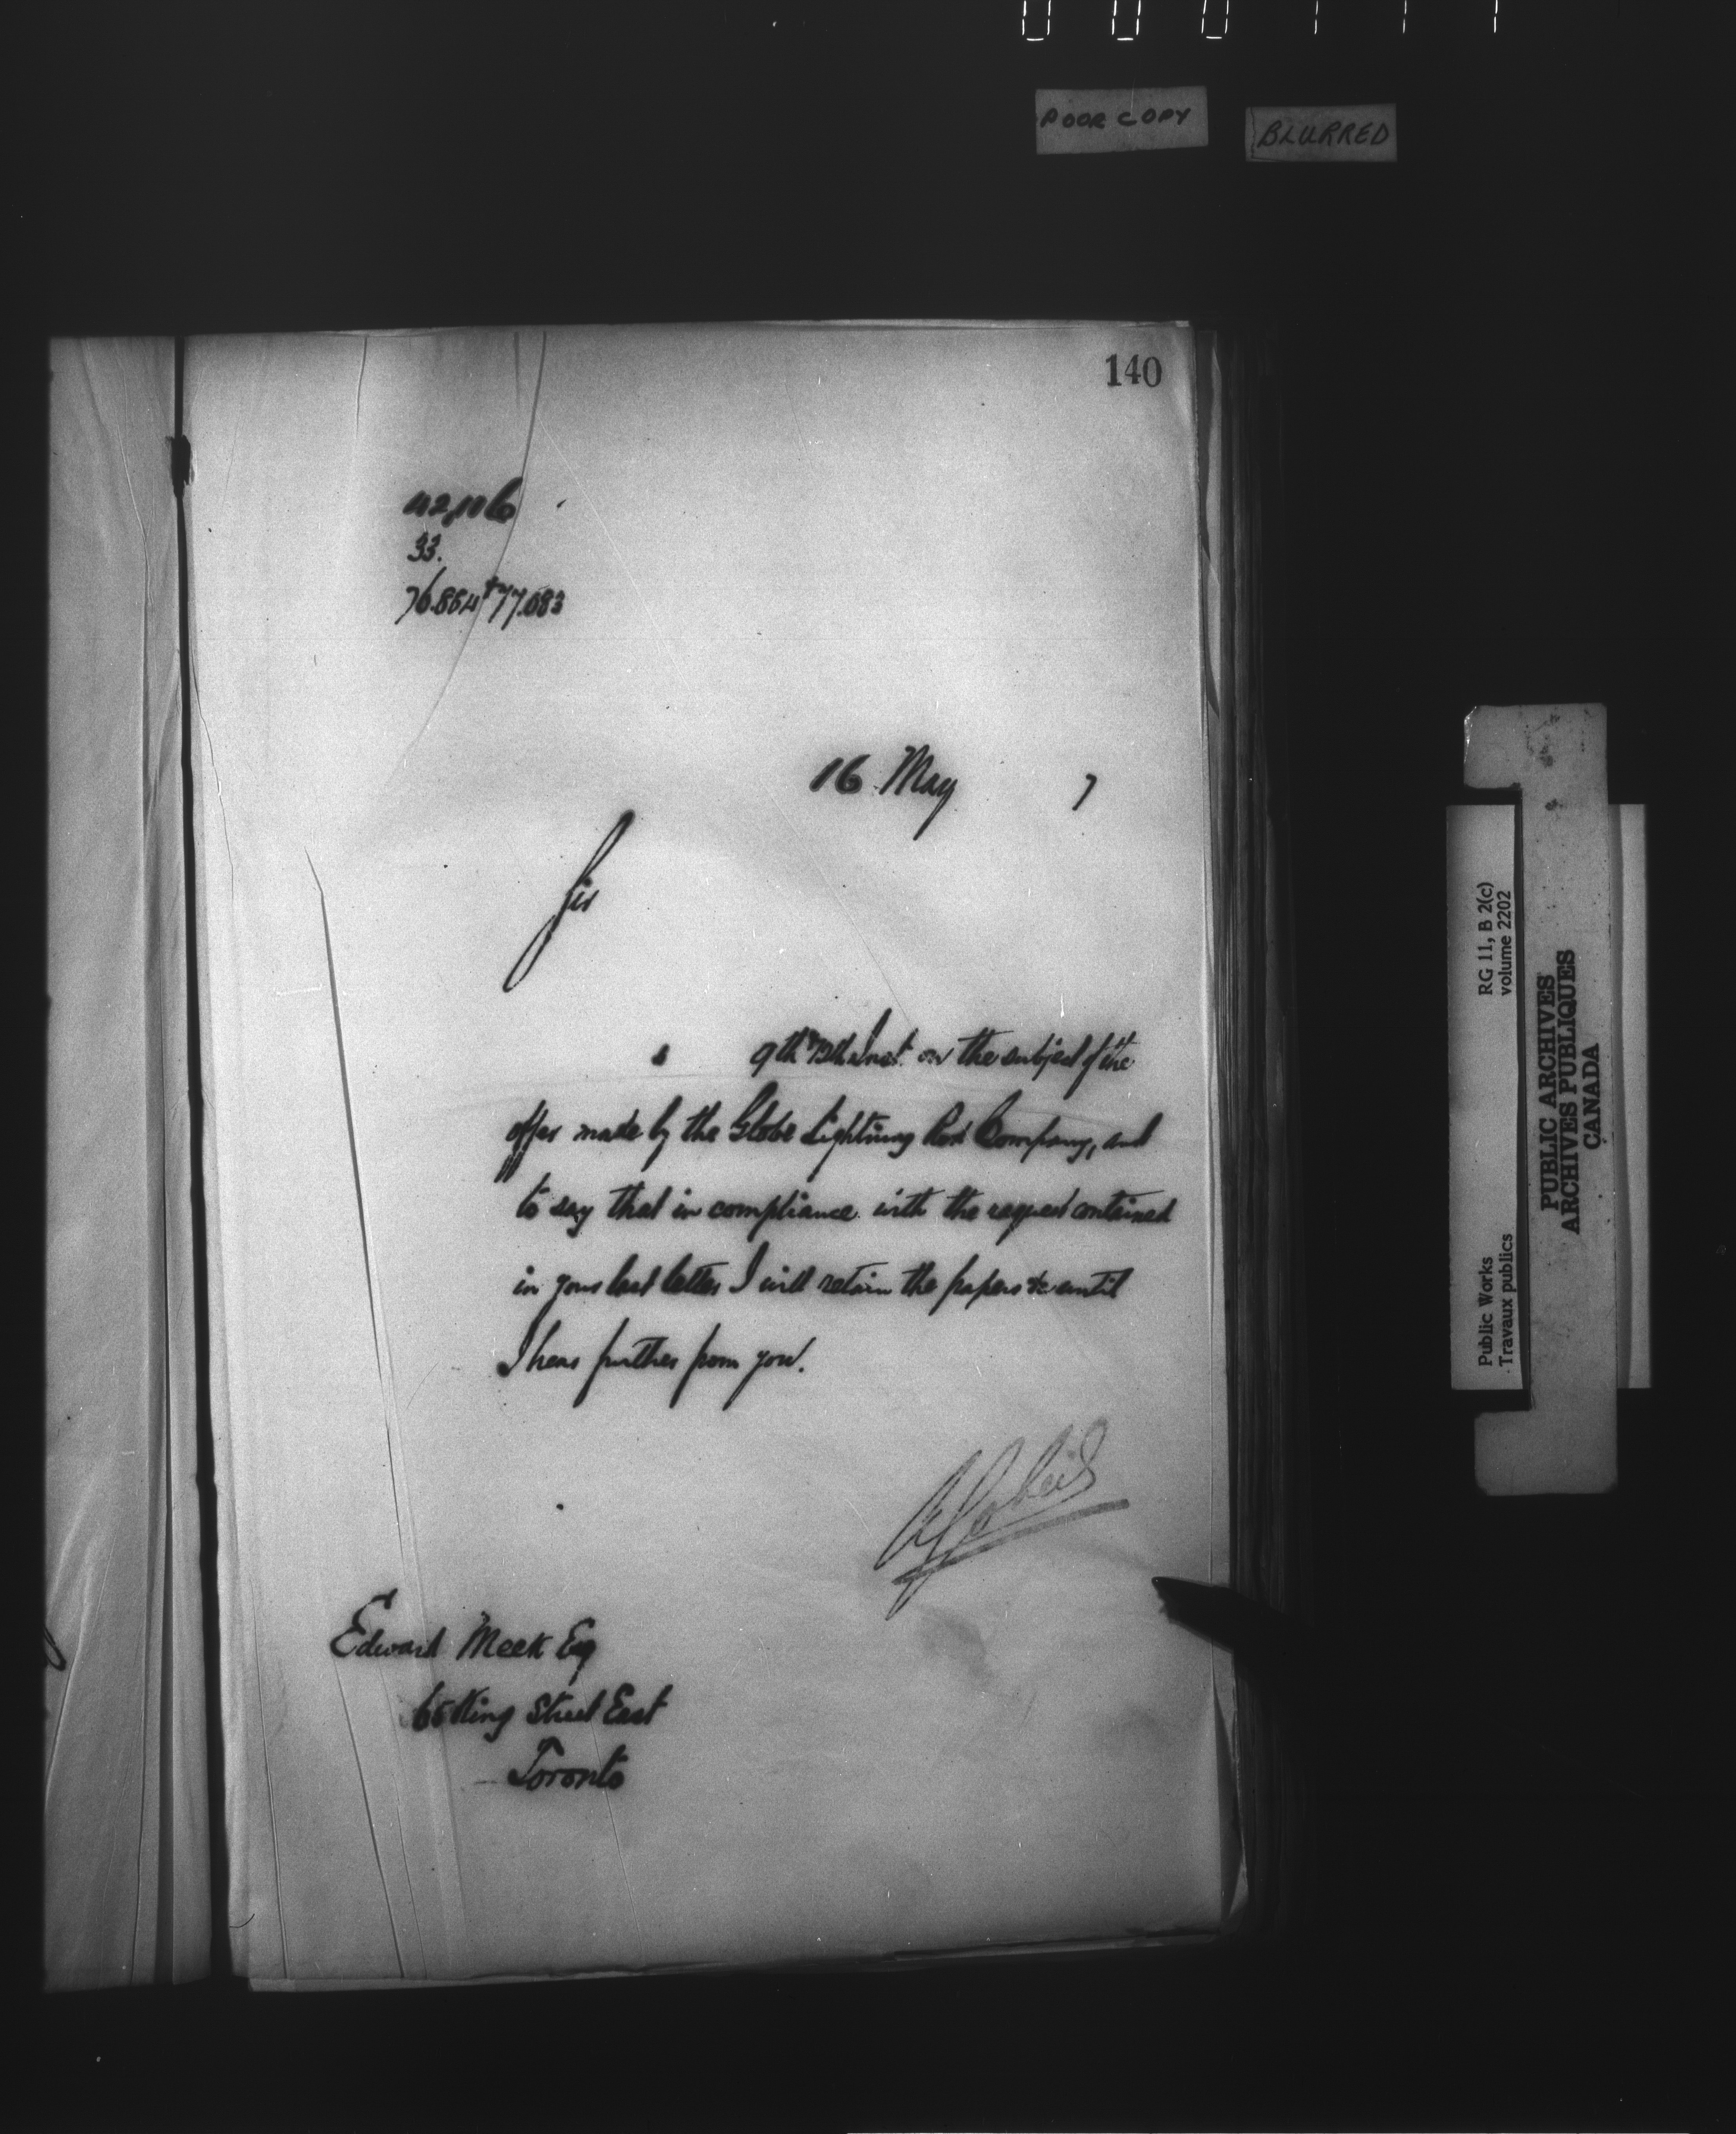 POOR COPY
BLURRED
140
42,106
33.
76.864 & 77.083
16 May 7
Sir
s 9th & 12th Inst. on the subject of the
offer made by the Globe Lightning Rod Company, and
to say that in compliance with the request contained
in your last letter I will retain the papers &c until
I hear further from you.
Edward Meek Esq
65 King Street East
Toronto
Public Works RG 11, B 2(c)
Travaux publics volume 2202
PUBLIC ARCHIVES
ARCHIVES PUBLIQUES
CANADA